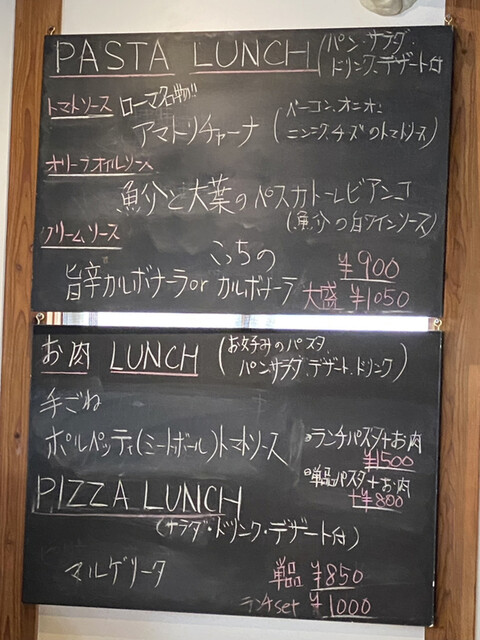 PASTA LUNCH (パン・サラダ・
ドリンク、デザート付
トマトソース ローマ名物!!
アマトリチャーナ (ベーコン、オニオン
ニンニク、チーズのトマトソース)
オリーブオイルソース
魚介と大葉のペスカトーレビアンコ
(魚介の白ワインソース)
クリームソース
こっちの
旨辛カルボナーラor カルボナーラ
¥900
大盛 ¥1050
お肉 LUNCH (お好みのパスタ、
パンサラダ、デザート、ドリンク)
手ごね
ポルペッティ(ミートボール)トマトソース
ランチパスタ+お肉
¥1500
単品パスタ+お肉
+¥800
PIZZA LUNCH
(サラダ・ドリンク・デザート付)
マルゲリータ
単品 ¥850
ランチset ¥1000